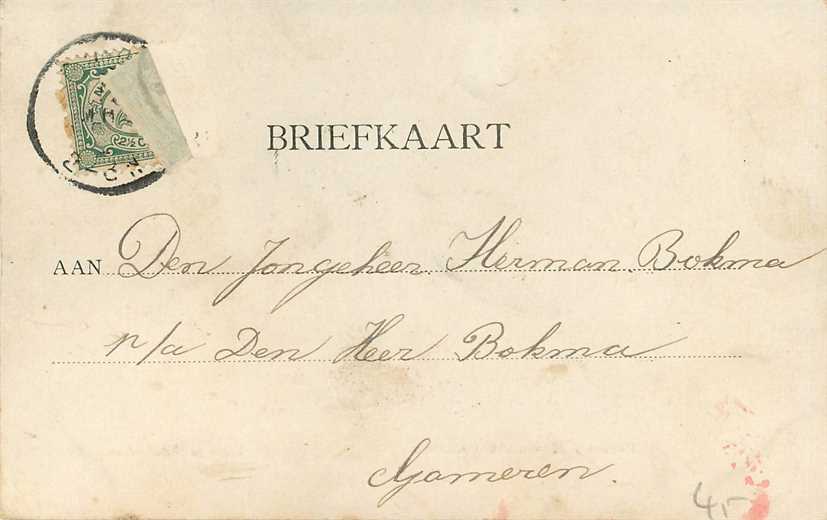 2½ C
BRIEFKAART
AAN Den Jongeheer Herman Bokma
p/a Den Heer Bokma
Gameren.
4,-